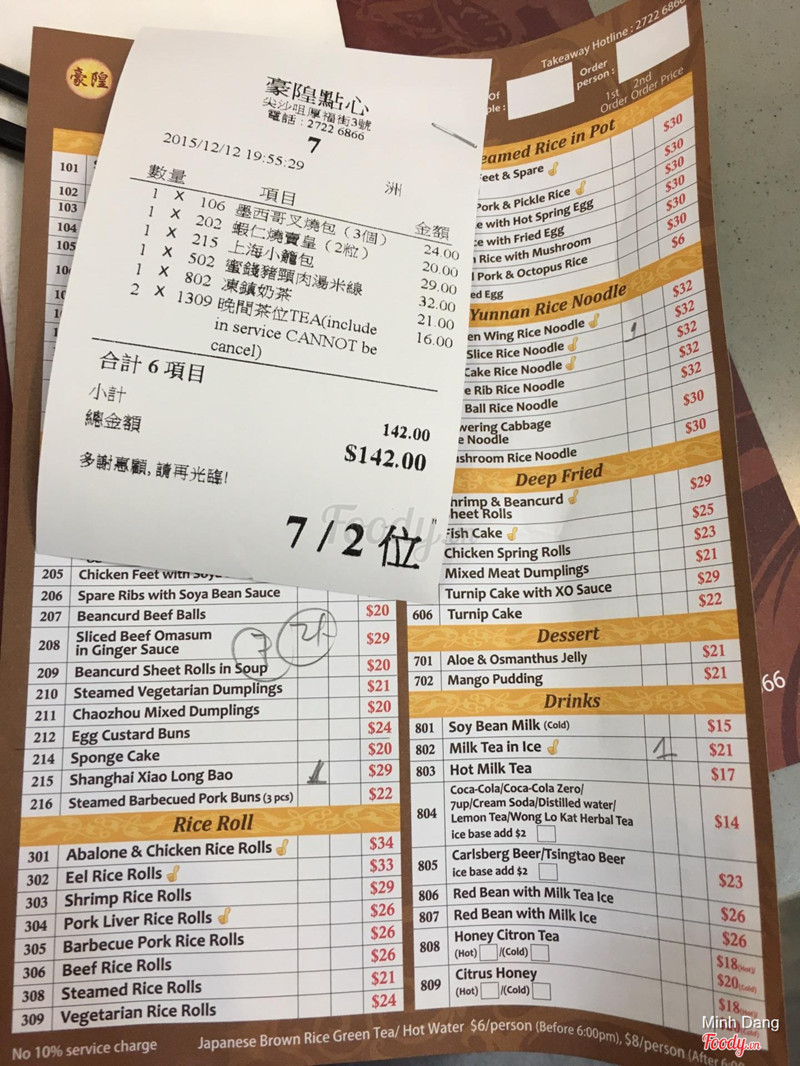 豪隍
豪隍點心
尖沙咀厚福街3號
電話 : 2722 6866
7
2015/12/12 19:55:29
洲
數量 項目 金額
1 X 106 墨西哥叉燒包（3個） 24.00
1 X 202 蝦仁燒賣皇（2粒） 20.00
1 X 215 上海小籠包 29.00
1 X 502 蜜錢豬頸肉湯米線 32.00
1 X 802 凍鎮奶茶 21.00
2 X 1309 晚間茶位TEA(include 16.00
in service CANNOT be
cancel)
合計 6 項目
小計 142.00
總金額 $142.00
多謝惠顧, 請再光臨!
7 / 2 位
101
102
103
104
105
205 Chicken Feet with Soya
206 Spare Ribs with Soya Bean Sauce
207 Beancurd Beef Balls $20
208 Sliced Beef Omasum
in Ginger Sauce $29
7
209 Beancurd Sheet Rolls in Soup $20
210 Steamed Vegetarian Dumplings $21
211 Chaozhou Mixed Dumplings $20
212 Egg Custard Buns $24
214 Sponge Cake $20
215 Shanghai Xiao Long Bao 1 $29
216 Steamed Barbecued Pork Buns (3 pcs) $22
Rice Roll
301 Abalone & Chicken Rice Rolls $34
302 Eel Rice Rolls $33
303 Shrimp Rice Rolls $29
304 Pork Liver Rice Rolls $26
305 Barbecue Pork Rice Rolls $26
306 Beef Rice Rolls $26
308 Steamed Rice Rolls $21
309 Vegetarian Rice Rolls $24
Takeaway Hotline : 2722 6866
Of
ple :
Order
person :
1st Order
2nd Order
Price
eamed Rice in Pot
Feet & Spare $30
Pork & Pickle Rice $30
e with Hot Spring Egg $30
ce with Fried Egg $30
Rice with Mushroom $30
Pork & Octopus Rice $30
ed Egg $6
Yunnan Rice Noodle
en Wing Rice Noodle $32
Slice Rice Noodle 1 $32
Cake Rice Noodle $32
e Rib Rice Noodle $32
Ball Rice Noodle $32
wering Cabbage
e Noodle $30
ushroom Rice Noodle $30
Deep Fried
hrimp & Beancurd
heet Rolls $29
Fish Cake $25
Chicken Spring Rolls $23
Mixed Meat Dumplings $21
Turnip Cake with XO Sauce $29
606 Turnip Cake $22
Dessert
701 Aloe & Osmanthus Jelly $21
702 Mango Pudding $21
Drinks
801 Soy Bean Milk (Cold) $15
802 Milk Tea in Ice 1 $21
803 Hot Milk Tea $17
804 Coca-Cola/Coca-Cola Zero/
7up/Cream Soda/Distilled water/
Lemon Tea/Wong Lo Kat Herbal Tea
ice base add $2 $14
805 Carlsberg Beer/Tsingtao Beer
ice base add $2 $23
806 Red Bean with Milk Tea Ice $26
807 Red Bean with Milk Ice $26
808 Honey Citron Tea
(Hot) /(Cold) $18(Hot) $20(Cold)
809 Citrus Honey
(Hot) /(Cold) $18
No 10% service charge
Japanese Brown Rice Green Tea/ Hot Water $6/person (Before 6:00pm), $8/person (After 6:00
66
Foody.vn
Minh Dang
Foody.vn